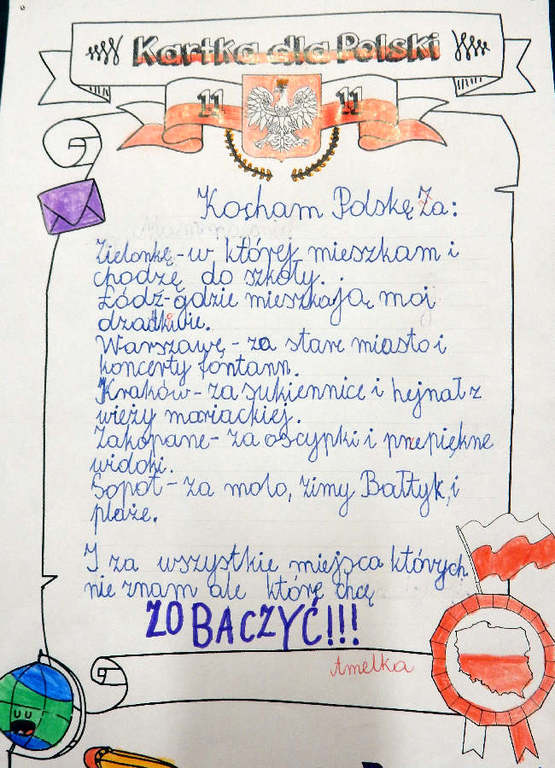 Kartka dla Polski
11 11
Kocham Polskę Za:
Zielonkę - w której mieszkam i
chodzę do szkoły.
Łódź - gdzie mieszkają moi
dziadkowie.
Warszawę - za stare miasto i
koncerty fontann.
Kraków - za sukiennice i hejnał z
wieży mariackiej.
Zakopane - za oscypki i przepiękne
widoki.
Sopot - za molo, zimy Bałtyk, i
plaże.
I za wszystkie miejsca których
nie znam ale które chcę
ZOBACZYĆ!!!
Amelka